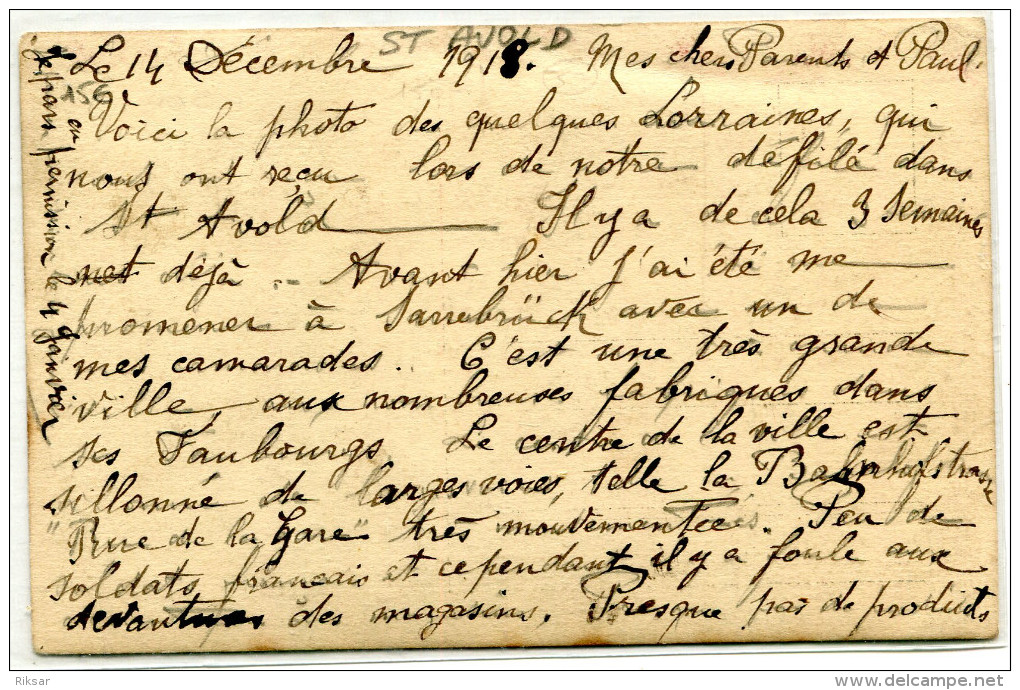 ST AVOLD
156
Le 14 Décembre 1918. Mes chers Parents et Paul.
Voici la photo des quelques Lorraines, qui
nous ont reçu lors de notre défilé dans
St Avold Il y a de cela 3 semaines
déjà. - Avant hier j'ai été me
promener à Sarrebrück avec un de
mes camarades. C'est une très grande
ville, aux nombreuses fabriques dans
ses Faubourgs. Le centre de la ville est
sillonné de larges voies, telle la Bahnhofstrasse
"Rue de la Gare" très mouvementées. Peu de
soldats français et cependant il y a foule aux
devantures des magasins. Presque pas de produits
Je pars en permission le 4 Janvier
Riksar
delcampe.net